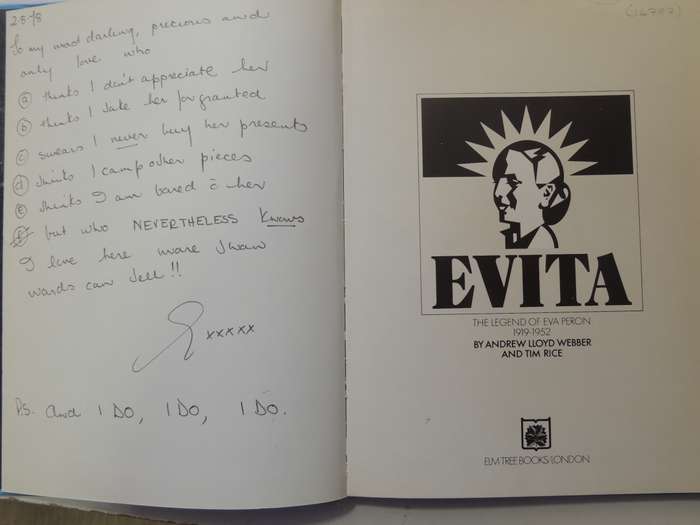 2-8-78
To my most darling, precious and
only love who
(a) thinks I don't appreciate her
(b) thinks I take her for granted
(c) swears I never buy her presents
(d) thinks I camp other pieces
(e) thinks I am bored c̄ her
(f) but who NEVERTHELESS Knows
I love here more than
words can tell!!
xxxxx
P.S. And I DO, I DO, I DO.
(16707)
EVITA
THE LEGEND OF EVA PERON
1919-1952
BY ANDREW LLOYD WEBBER
AND TIM RICE
ELM TREE BOOKS/LONDON